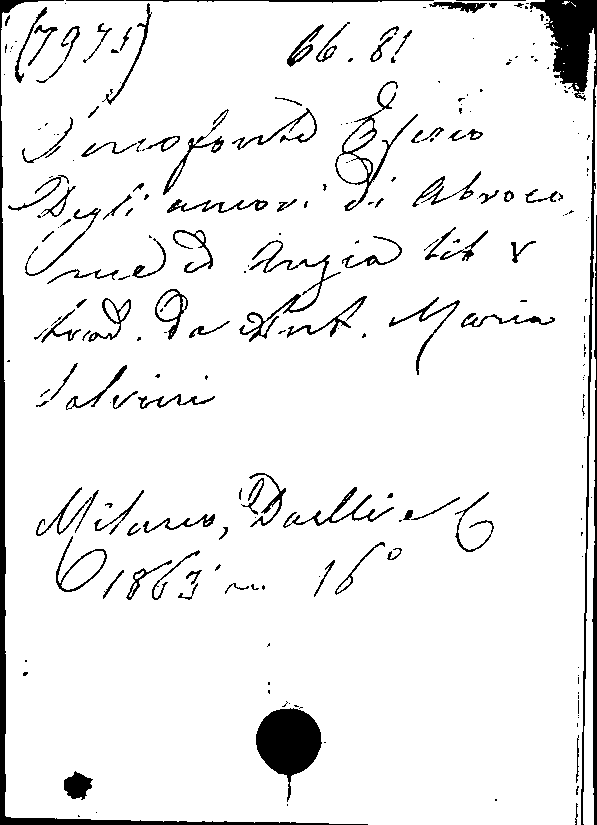 (7975) 66.81
Senofonte Efesio
Degli amori di Abroco,
me e d'Anzia lib V
trad. da Ant. Maria
Salvini
Milano, Daelli e C
1863 in 16°